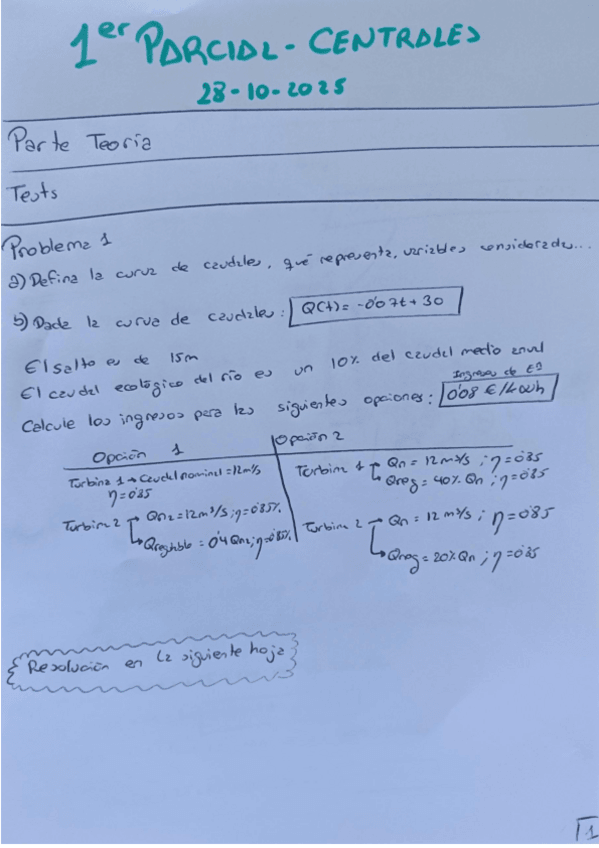 1er PARCIAL - CENTRALES
28-10-2025
Parte Teoría
Tests
Problema 1
a) Defina la curva de caudales, qué representa, variables consideradas...
b) Dada la curva de caudales: Q(t) = -0'07t + 30
El salto es de 15m
El caudal ecológico del río es un 10% del caudal medio anual
Ingresos de Eª
Calcule los ingresos para las siguientes opciones: 0'08 €/kWh
Opción 1
Turbina 1 → Caudal nominal = 12m³/s
η = 0'85
Turbina 2 → Qn2 = 12m³/s ; η = 0'85%
Qreglable = 0'4 Qn2 ; η = 0'85%
Opción 2
Turbina 1 → Qn = 12 m³/s ; η = 0'85
Qreg = 40% Qn ; η = 0'85
Turbina 2 → Qn = 12 m³/s ; η = 0'85
Qreg = 20% Qn ; η = 0'85
Resolución en la siguiente hoja
1